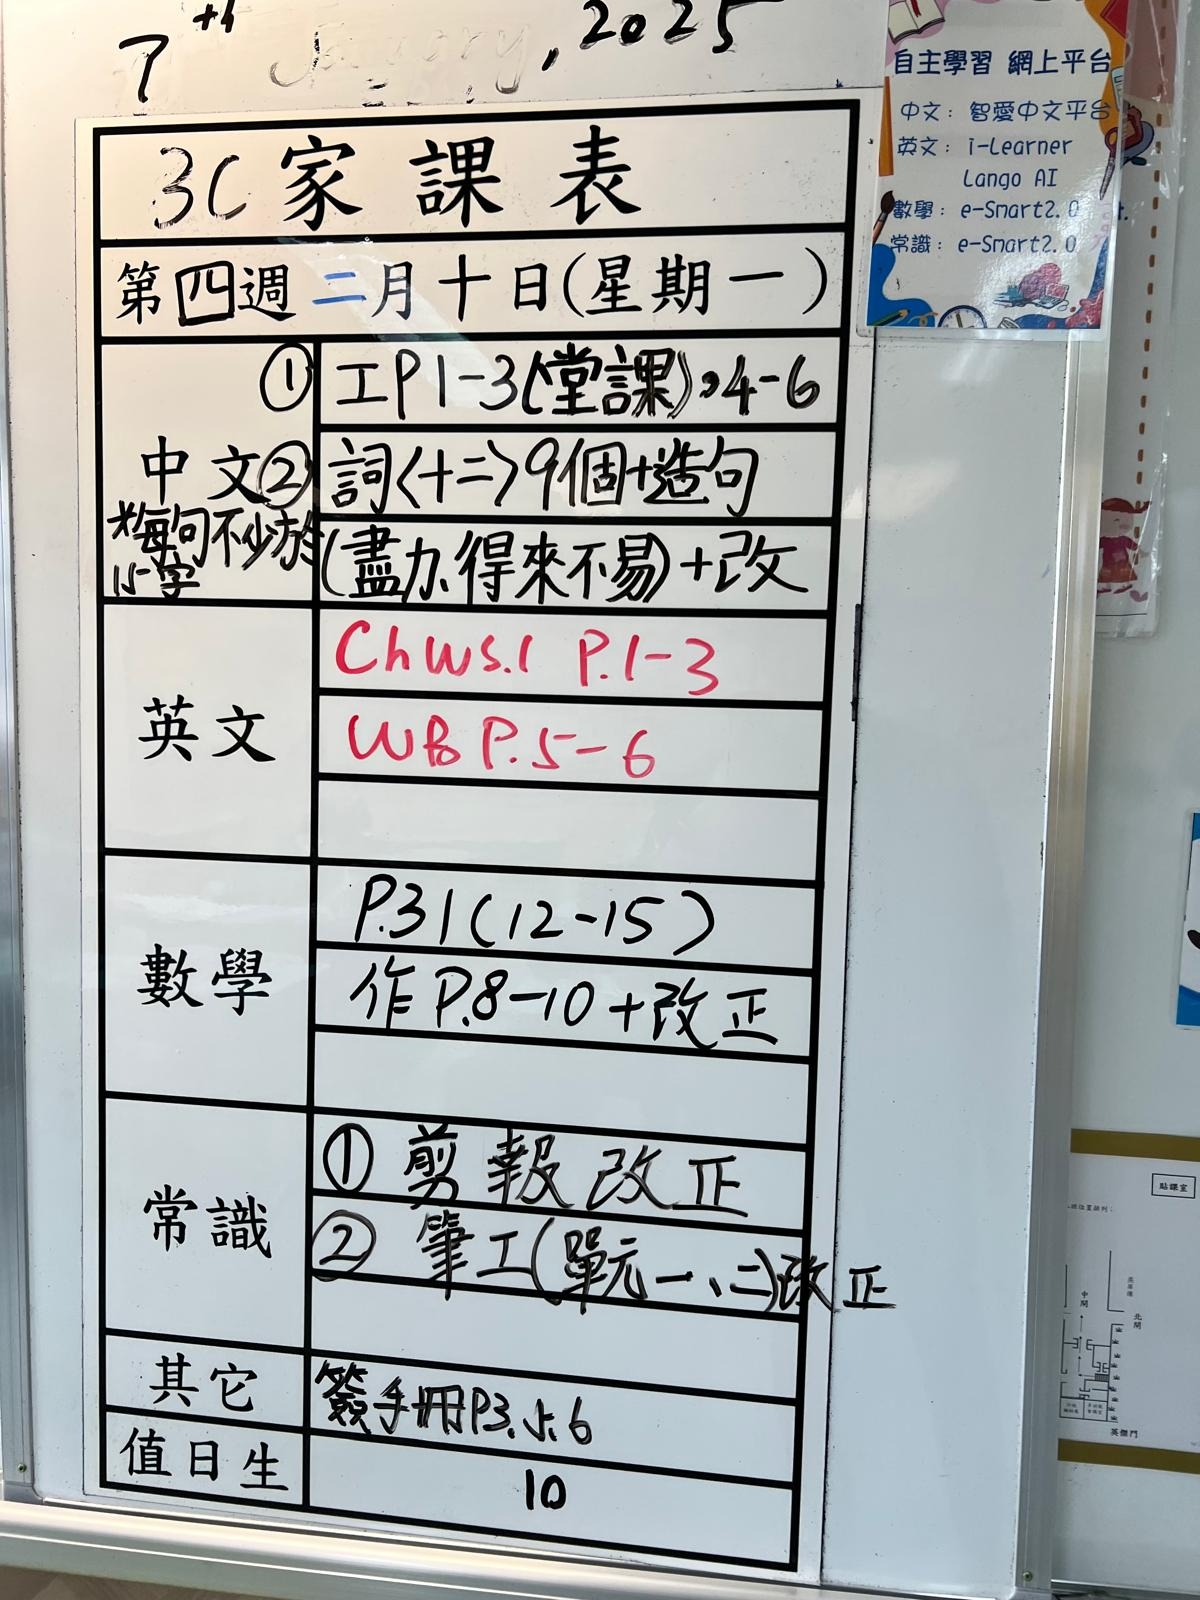 7th January, 2025
3C家課表
第四週 二月十日(星期一)
中文
① 工P1-3(堂課),4-6
② 詞<十二>9個+造句
(盡力、得來不易)+改
*每句不少於
15字
英文
Ch WS.1 P.1-3
WB P.5-6
數學
P.31(12-15)
作P.8-10+改正
常識
① 剪報改正
② 筆工(單元一、二)改正
其它
簽手冊P3、5、6
值日生
10
自主學習 網上平台
中文: 智愛中文平台
英文: i-Learner
Lango AI
數學: e-Smart2.0
常識: e-Smart2.0
點課室
北閘
中閘
英傑門